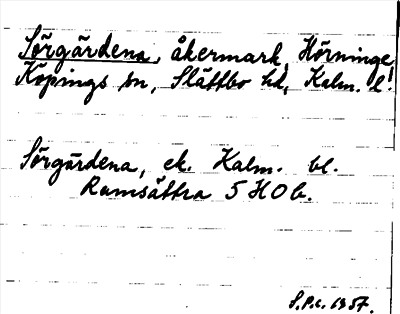 Sörgärdena, åkermark, Hörninge,
Köpings sn, Slättbo hd, Kalm. l.
Sörgärdena, ek. Kalm. bl.
Ramsättra 5 H O b.
S.P.L. 1957.